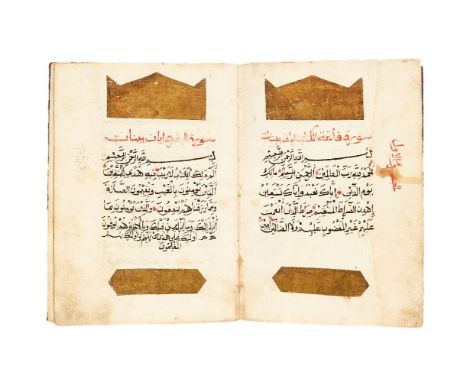 سورة فاتحة الكتاب
بسم الله الرحمن الرحيم
الحمد لله رب العالمين الرحمن الرحيم مالك
يوم الدين إياك نعبد وإياك نستعين
اهدنا الصراط المستقيم صراط الذين أنعمت
عليهم غير المغضوب عليهم ولا الضالين
سورة
بسم الله الرحمن الرحيم
الم ذلك الكتاب لا ريب فيه هدى للمتقين
الذين يؤمنون بالغيب ويقيمون الصلاة
ومما رزقناهم ينفقون والذين يؤمنون بما
أنزل إليك وما أنزل من قبلك وبالآخرة هم يوقنون
أولئك على هدى من ربهم وأولئك هم
المفلحون